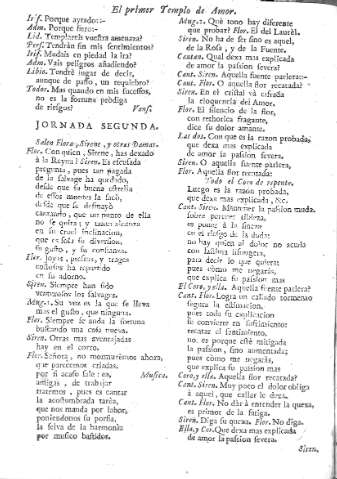 El primer Templo de Amor.
Isif. Porque ayrado::-
Adm. Porque fiero::-
Lid. Templareis vuestra amenaza?
Pers. Tendràn fin mis sentimientos?
Isif. Mudais en piedad la ira?
Adm. Vais peligros añadiendo?
Libia. Tendrè lugar de decir,
aunque de passo, un requiebro?
Todos. Mas quando en mis sucessos,
no es la fortuna prodiga
de riesgos? Vans.
JORNADA SEGUNDA.
Salen Flora, Sirene, y otras Damas.
Flor. Con quien, Sirene, has dexado
à la Reyna? Siren. Es escusada
pregunta, pues un pagada
de la salvage ha quedado,
desde que su buena estrella
de estos montes la sacò,
desde que
que un punto de ella
no se quita; y
en su cruel inclinacion,
que es sola su diversion,
su gusto, y su confianza.
Flor. Joyas, preseas, y trages
ha repartido
en su adorno.
Siren. Siempre han sido
venturosos los salvages.
Mug.1. Su vez es la que se lleva
mas el gusto, que ninguna.
Flor. Siempre se anda la fortuna
buscando una cosa nueva.
Siren. Otras mas aventajadas
hay en el corro.
Flor. Señora, no murmuremos ahora,
que pareceremos criadas.
por si acaso sale: ea, Musica.
amigas, de trabajar
tratemos, pues es cantar
la acostumbrada taréa,
que nos manda por labor,
poniendonos su porfia,
la selva de la harmonia
por musico bastidor.
Mug.1. Què tono hay diferente
que probar? Flor. El del Laurèl.
Siren. No ha de ser sino es aquel,
de la Rosa, y de la Fuente.
Cantan. Qual dexa mas explicada
de amor la passion severa?
Cant. Siren. Aquella fuente parlera:-
Cant. Flor. O aquella flor recatada?
Siren. En el cristal và cifrada
la eloquencia del Amor.
Flor. El silencio de la flor,
con rethorica fragante,
dice su dolor amante.
Las dos. Con que es la razon probada,
que dexa mas explicada
de amor la passion severa.
Siren. O aquella fuente parlera,
Flor. Aquella flor recatada:
Todo el Coro de repente.
Luego es la razon probada,
que dexa mas explicada, &c.
Cant. Siren. Mantener la passion muda
sobre parecer
es poner à la
en el riesgo de la duda:
no hay quien al dolor no acuda
con lastima lisongera,
para decir lo que quiera;
pues còmo me negaràs,
que explica su passion mas
El Coro, y ella. Aquella fuente parlera?
Cant. Flor. Logra un callado tormento
segura la estimacion,
pues toda su explicacion
se convierte en sufrimiento:
recatar el sentimiento,
no es porque estè mitigada
la passion, sino aumentada;
pues còmo me negaràs,
que explica su passion mas
Coro, y ella. Aquella flor recatada?
Cant. Siren. Muy poco el dolor obliga
à aquel, que callar le dexa.
Cant. Flor. No dàr à entender la quexa,
es primor de la fatiga.
Siren. Diga su quexa. Flor. No diga.
Ella, y Cor. Que dexa mas explicada
de amor la passion severa.
Siren.